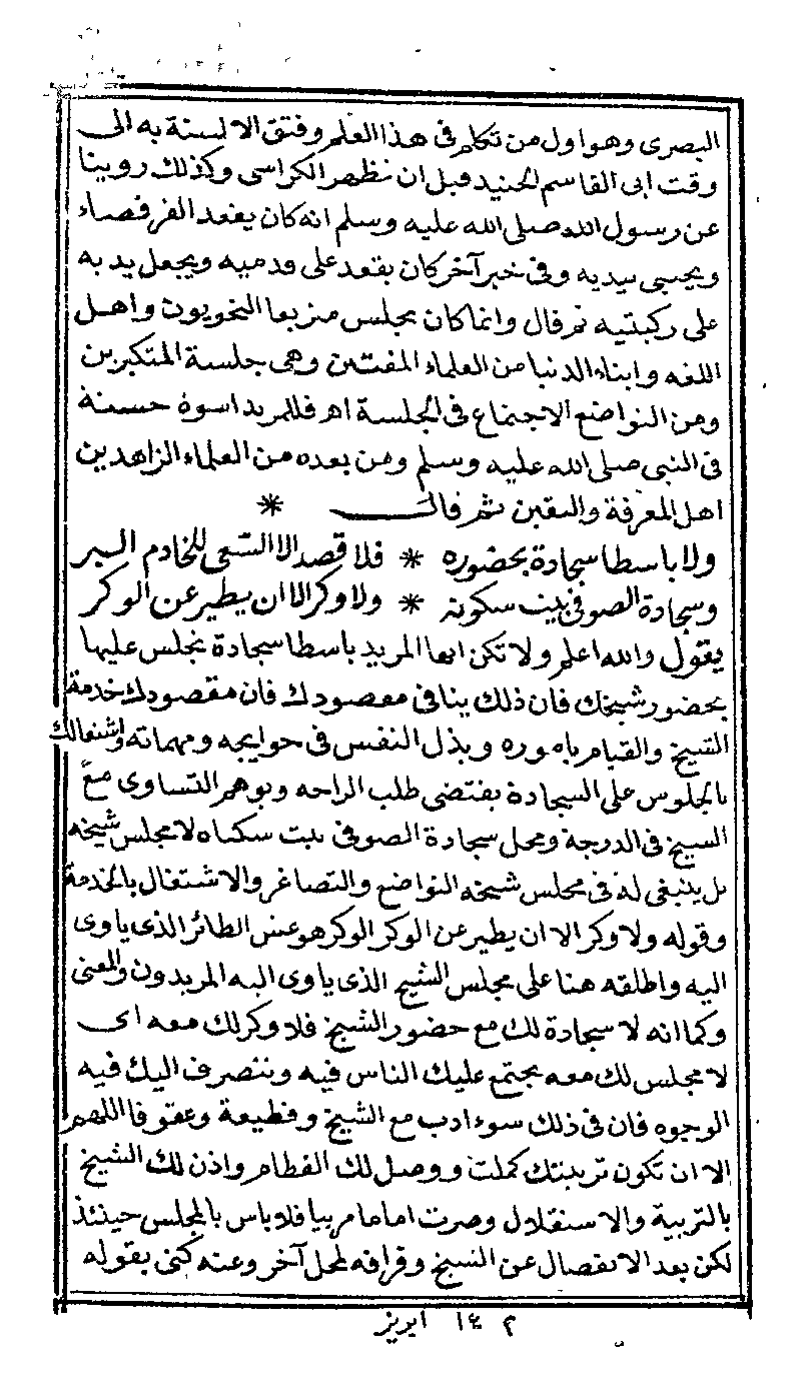 البصرى وهو اول من تكلم فى هذا العلم وفتق الالسنة به الى
وقت ابى القاسم الجنيد قبل ان تظهر الكراسى وكذلك روينا
عن رسول الله صلى الله عليه وسلم انه كان يقعد القرفصاء
ويحتبى بيديه وفى خبر آخر كان يقعد على قدميه ويجعل يديه
على ركبتيه ثم قال وانما كان يجلس متربعا النحويون واهل
اللغه وابناء الدنيا من العلماء المفتين وهى جلسة المتكبرين
ومن التواضع الاجتماع فى الجلسة اه فللمريد اسوة حسنة
فى النبى صلى الله عليه وسلم ومن بعده من العلماء الزاهدين
اهل المعرفة واليقين ثم قال *
ولا باسطا سجادة بحضوره * فلا قصد الا السعى للخادم البر
وسجادة الصوفى بيت سكونه * ولا وكر الا ان يطير عن الوكر
يقول والله اعلم ولا تكن ايها المريد باسطا سجادة تجلس عليها
بحضور شيخك فان ذلك ينافى مقصودك فان مقصودك خدمة
الشيخ والقيام باموره وبذل النفس فى حوايجه ومهماته واشتغالك
بالجلوس على السجادة يقتضى طلب الراحه ويوهم التساوى مع
الشيخ فى الدرجة ومحل سجادة الصوفى بيت سكناه لا مجلس شيخه
بل ينبغى له فى مجلس شيخه التواضع والتصاغر والاشتغال بالخدمة
وقوله ولا وكر الا ان يطير عن الوكر الوكر هو عش الطائر الذى ياوى
اليه واطلقه هنا على مجلس الشيخ الذى ياوى اليه المريدون والمعنى
وكما انه لا سجادة لك مع حضور الشيخ فلا وكر لك معه اى
لا مجلس لك معه يجتمع عليك الناس فيه وتنصرف اليك فيه
الوجوه فان فى ذلك سوء ادب مع الشيخ وقطيعة وعقوقا اللهم
الا ان تكون تربيتك كملت ووصل لك الفطام واذن لك الشيخ
بالتربية والاستقلال وصرت اماما مربيا فلا باس بالمجلس حينئذ
لكن بعد الانفصال عن الشيخ وفراقه لمحل آخر وعنه كنى بقوله
٢ ١٤ ابريز